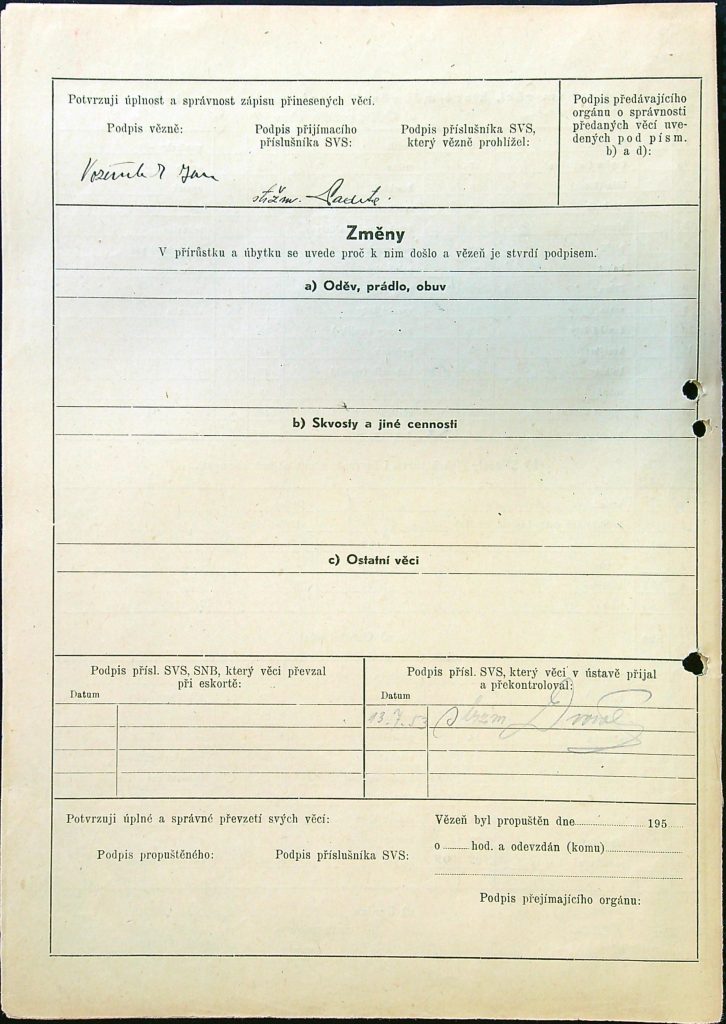 Potvrzuji úplnost a správnost zápisu přinesených věcí.
Podpis vězně:
Podpis přijímacího
příslušníka SVS:
Podpis příslušníka SVS,
který vězně prohlížel:
Podpis předávajícího
orgánu o správnosti
předaných věcí uve-
dených pod písm.
b) a d):
Jan
strážm.
Změny
V přírůstku a úbytku se uvede proč k nim došlo a vězeň je stvrdí podpisem.
a) Oděv, prádlo, obuv
b) Skvosty a jiné cennosti
c) Ostatní věci
Podpis přísl. SVS, SNB, který věci převzal
při eskortě:
Datum
Podpis přísl. SVS, který věci v ústavě přijal
a překontroloval:
Datum
13.7.53
Potvrzuji úplné a správné převzetí svých věcí:
Podpis propuštěného:
Podpis příslušníka SVS:
Vězeň byl propuštěn dne 195
o hod. a odevzdán (komu)
Podpis přejímajícího orgánu: